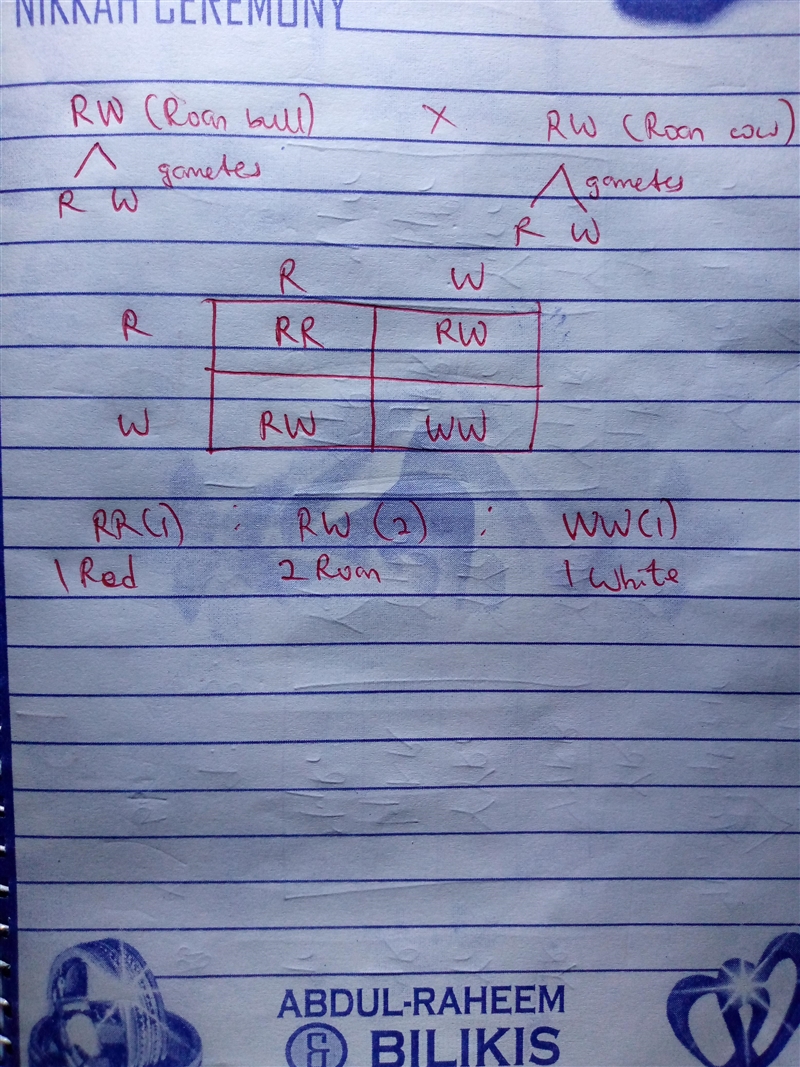 NIKKAH CEREMONY
RW (Roan bull) X RW (Roan cow)
gametes gametes
R W R W
R W
R RR RW
W RW WW
RR(1) : RW (2) : WW(1)
1 Red 2 Roan 1 White
ABDUL-RAHEEM
& BILIKIS